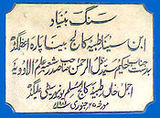 سنگ بنیاد
ابن سینا طبیہ کالج بینا پارہ اعظم گڈھ
بدست جناب حکیم سید ظل الرحمٰن صاحب صدر شعبہ علم الادویہ
اجمل خاں طبیہ کالج مسلم یونیورسٹی علیگڈھ
مورخہ ۲۵ جنوری